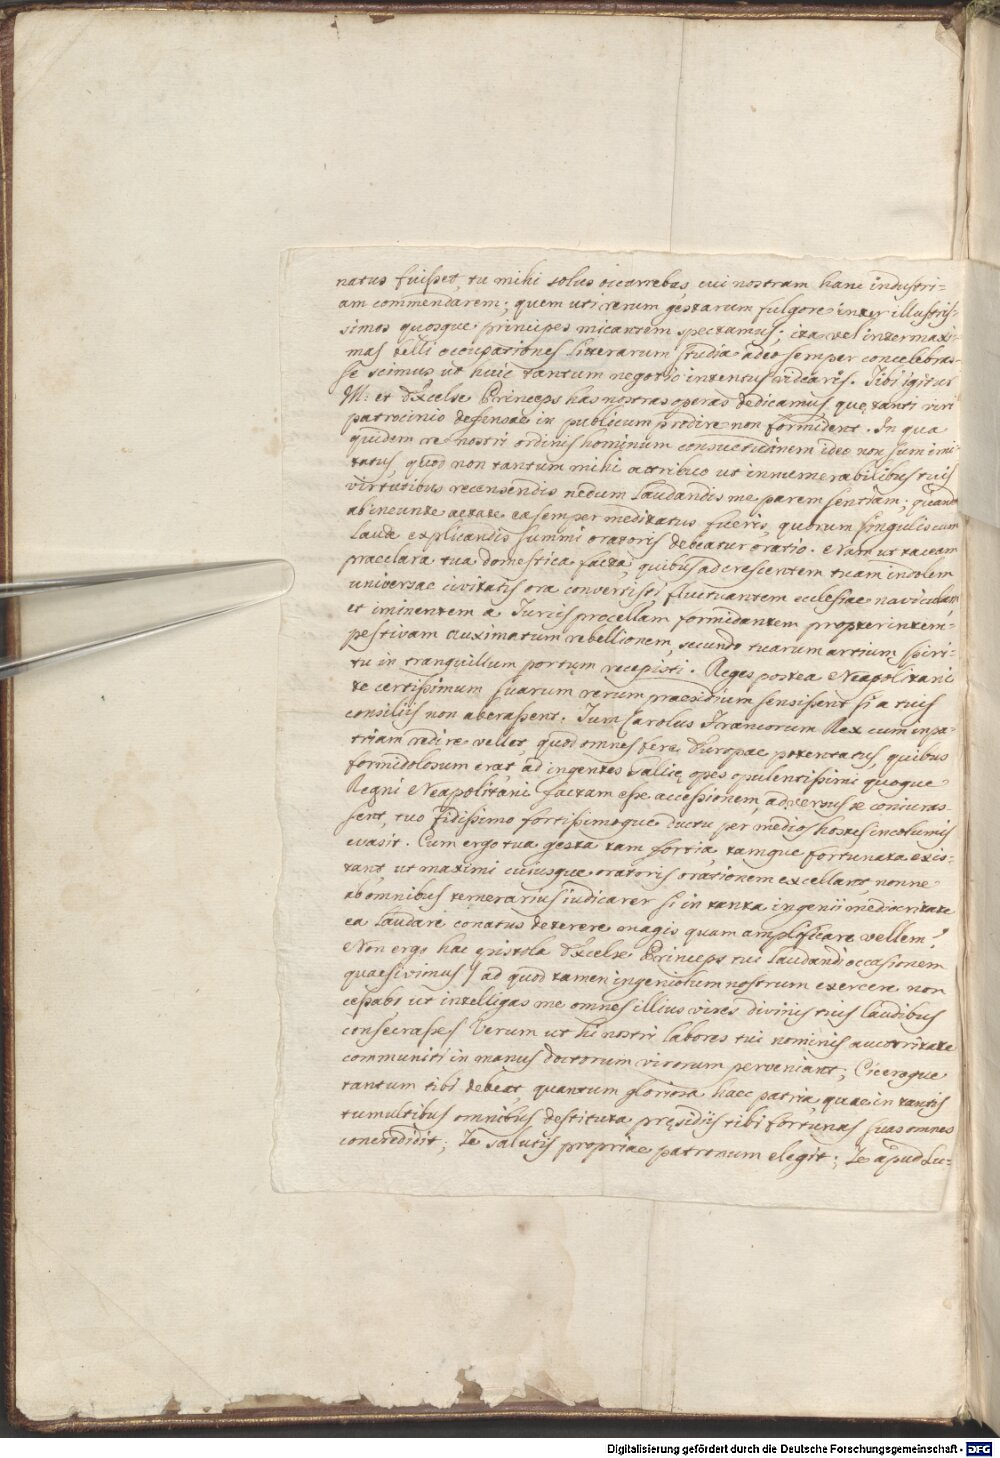 natus fuisset, tu mihi solus occurrebas, cui nostram hanc industri-
am commendarem; quem uti rerum gestarum fulgore inter illustris-
simos quosque principes micantem spectamus; ita vel inter maxi-
mas belli occupationes litterarum studia adeo semper concelebras-
se scimus ut huic tantum negotio intentus videaris. Tibi igitur
M: et Excelse Princeps has nostras operas dedicamus, quę tanti viri
patrocinio defensae in publicum prodire non formident. In qua
quidem re nostri ordinis hominum consuetudinem ideo non sum imi-
tatus, quod non tantum mihi attribuo ut innumerabilibus tuis
virtutibus recensendis nedum laudandis me parem sentiam; quando
ab ineunte aetate ea semper meditatus fueris, quorum singulis cum
laude explicandis summi oratoris debeatur oratio. Nam ut taceam
praeclara tua domestica facta, quibus adcrescentem tuam indolem
universae civitatis ora convertisti, fluituantem ecclesiae naviculam
et iminentem a Turcis procellam formidantem propter intem-
pestivam Auximatum rebellionem, secundo tuarum artium spiri-
tu in tranquillum portum recepisti. Reges postea Neapolitani
te certissimum suarum rerum praesidium sensissent si a tuis
consiliis non aberassent. Tum Carolus Francorum Rex cum in pa-
triam redire vellet, quod omnes fere Europae potentatus, quibus
formidolosum erat, ad ingentes Galię opes opulentissimi quoque
Regni Neapolitani factam esse accessionem, adversus se coniuras-
sent, tuo fidissimo fortissimoque ductu per medios hostes incolumis
evasit. Cum ergo tua gesta tam fortia, tamque fortunata exis-
tant, ut maximi cuiusque oratoris orationem excellant, nonne
ab omnibus temerarius iudicarer si in tanta ingenii mediocritate
ea laudare conatus deterere magis quam amplificare vellem?
Non ergo hac epistola Excelse Princeps tui laudandi occasionem
quaesivimus, ad quod tamen ingeniolum nostrum exercere non
cessabo ut intelligas me omnes illius vires divinis tuis laudibus
consecrasse, Verum ut hi nostri labores tui nominis auctoritate
communiti in manus doctorum virorum perveniant; Ciceroque
tantum tibi debeat, quantum gloriosa haec patria, quae in tantis
tumultibus omnibus destituta pręsidiis tibi fortunas suas omnes
concredidit; Te salutis propriae patronum elegit; Te apud Lu-
Digitalisierung gefördert durch die Deutsche Forschungsgemeinschaft - DFG